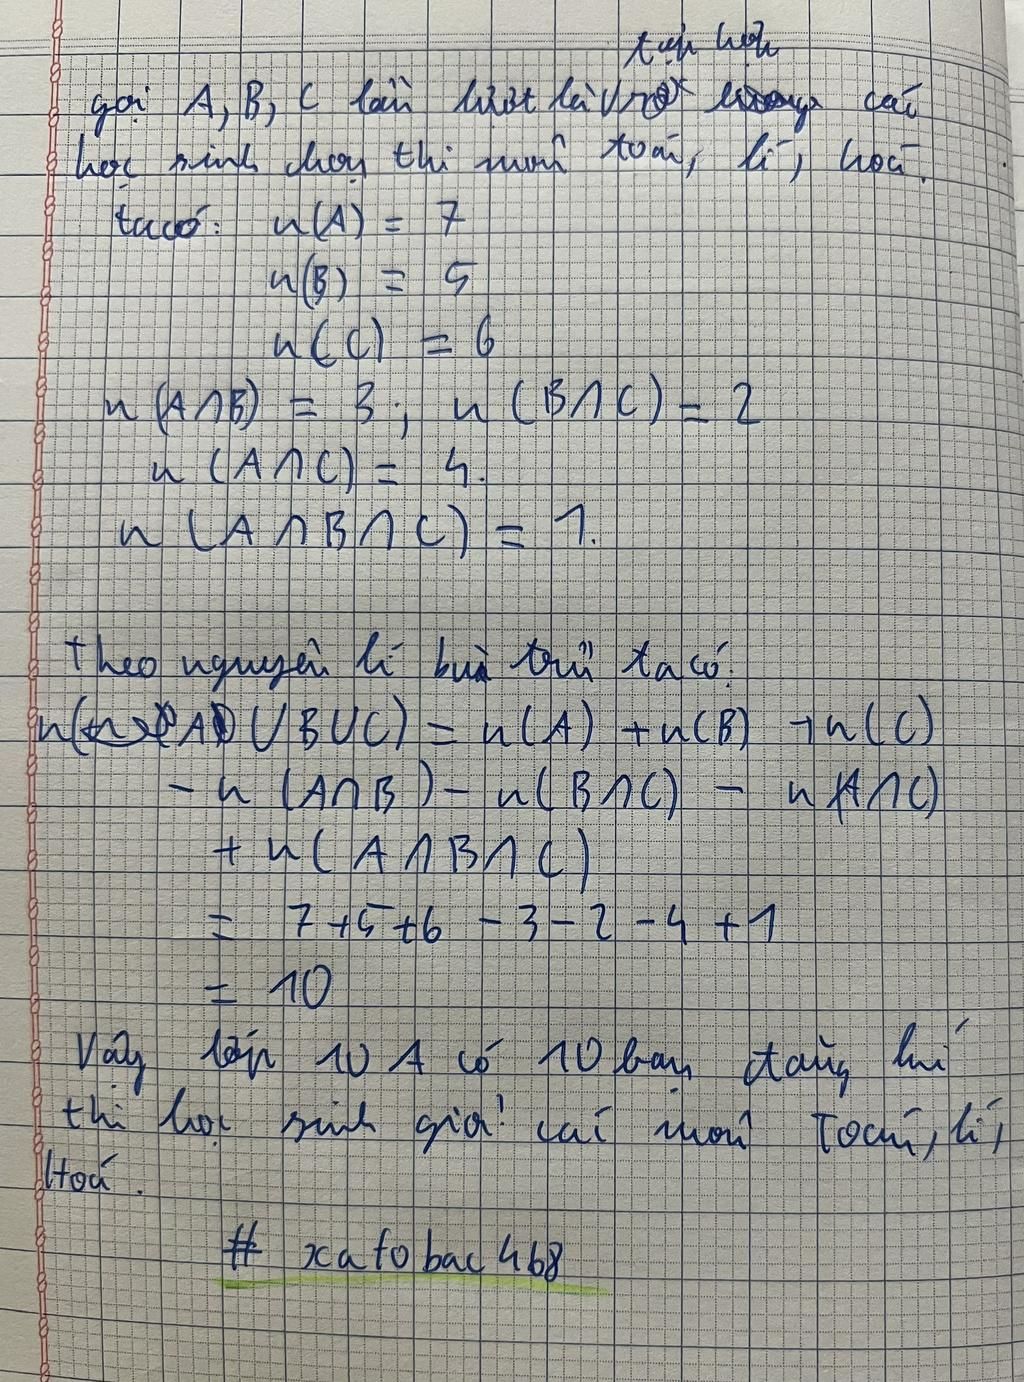 tập hợp
gọi A, B, C lần lượt là các
học sinh chọn thi môn toán, lí, hoá.
ta có: n(A) = 7
n(B) = 5
n(C) = 6
n(A∩B) = 3; n(B∩C) = 2
n(A∩C) = 4.
n(A∩B∩C) = 1.
Theo nguyên lí bù trừ ta có:
n(A∪B∪C) = n(A) + n(B) + n(C)
- n(A∩B) - n(B∩C) - n(A∩C)
+ n(A∩B∩C)
= 7+5+6 -3-2-4+1
= 10
Vậy lớp 10A có 10 bạn đăng kí
thi học sinh giỏi các môn Toán, lí,
Hoá.
# xatobac468